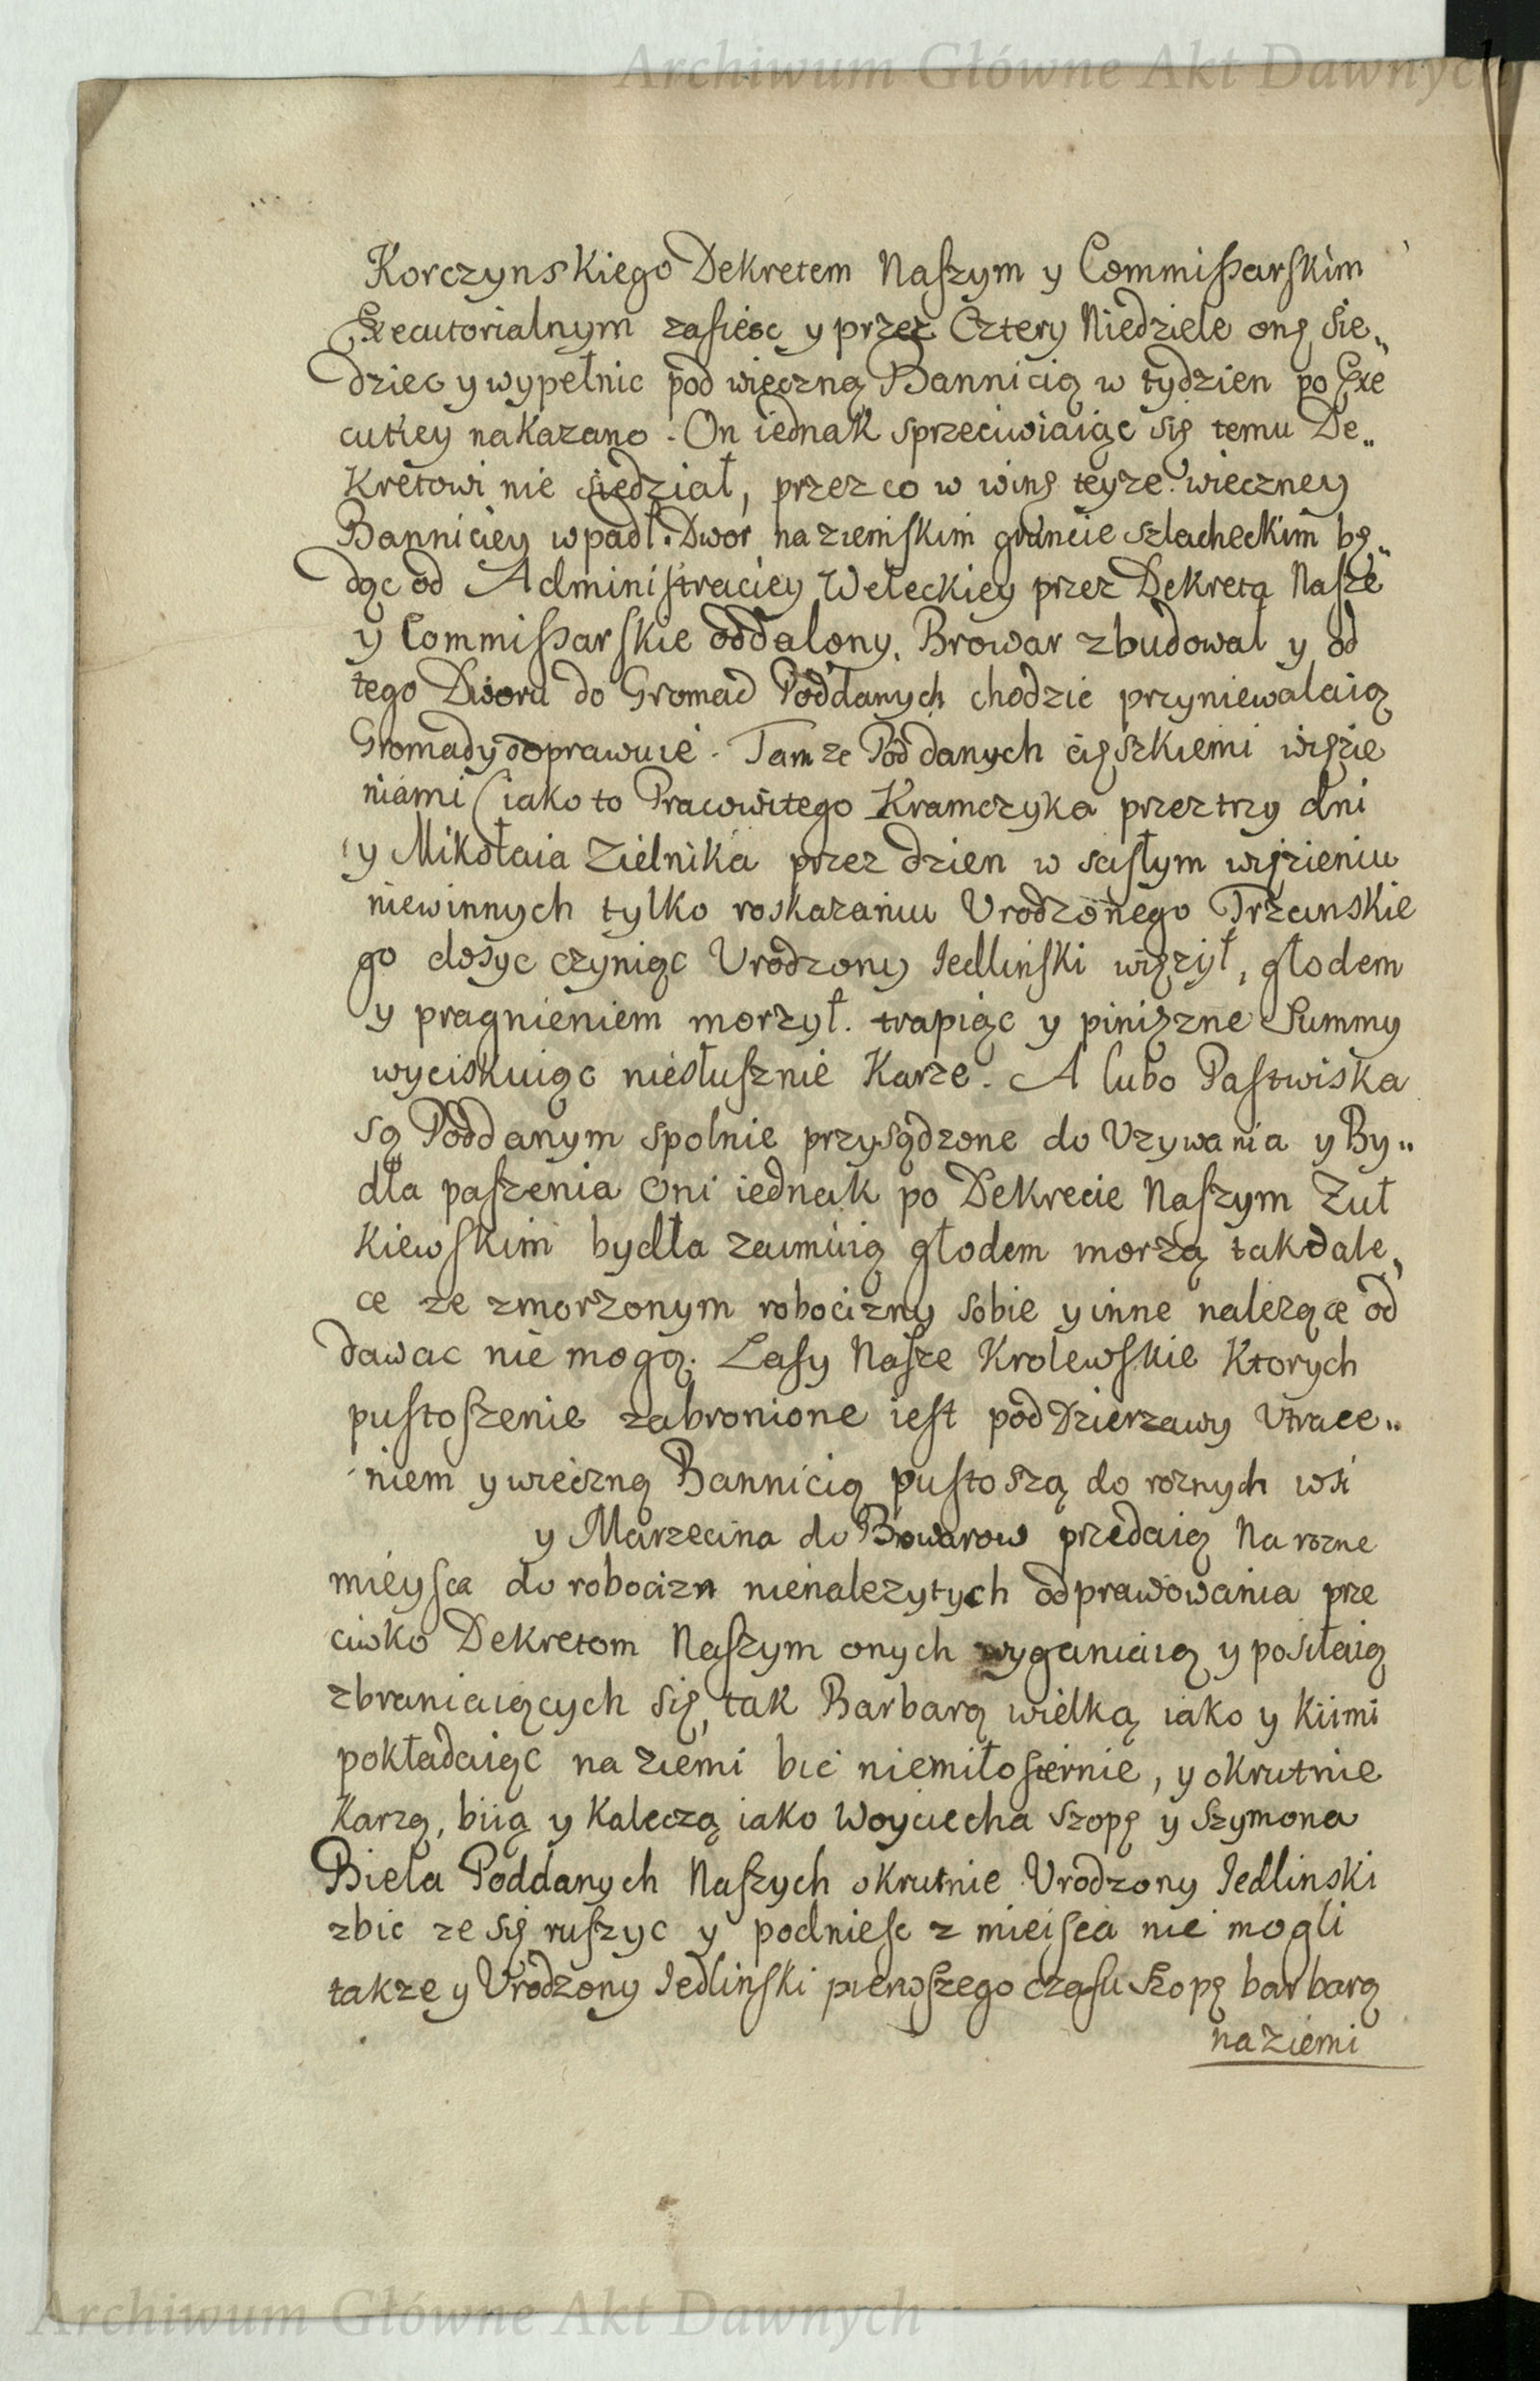 Archiwum Główne Akt Dawnych
Korczynskiego Dekretem Naszym y Commissarskim
Executorialnym zasieśc y przez Cztery Niedziele onę sie„
dziec y wypełnic pod wieczną Bannicią w tydzien po Exe
cutiey nakazano. On iednak sprzeciwiaiąc się temu De„
kretowi nie siedział, przez co w winę teyze wieczney
Banniciey wpadł. Dwor na ziemskim gruncie szlacheckim bę„
dąc od Administraciey Weleckiey przez Dekreta Nasze
y Commissarskie oddalony. Browar zbudował y od
tego Dworu do Gromad Poddanych chodzic przyniewalaią
Gromady odprawuie. Tamze Poddanych cięszkiemi więzie
niami (iako to Pracowitego Kramczyka przez trzy dni
y Mikołaia Zielnika przez dzien w scisłym więzieniu
niewinnych tylko roskazaniu Urodzonego Trzcinskie
go dosyc czyniąc Urodzony Iedlinski więził, głodem
y pragnieniem morzył. trapiąc y pinięzne Summy
wyciskuiąc niesłusznie Karze. A lubo Pastwiska
są Poddanym spolnie przysądzone do Uzywania y By„
dła paszenia oni iednak po Dekrecie Naszym Zuł
kiewskim bydła zaimuią głodem morzą takdale„
ce ze zmorzonym robocizny sobie y inne nalezące od
dawac nie mogą. Lasy Nasze Krolewskie Ktorych
pustoszenie zabronione iest pod Dzierzawy Utrace„
niem y wieczną Bannicią pustoszą do roznych wsi
y Marzecina do Browarow przedaią Na rozne
mieysca do robocizn nienalezytych odprawowania prze
ciwko Dekretom Naszym onych wyganiaią y posyłaią
zbraniaiących się, tak Barbarą wielką iako y kiimi
pokładaiąc na ziemi bic niemiłosiernie, y okrutnie
Karzą, biią y Kaleczą iako Woyciecha Szopę y Szymona
Biela Poddanych Naszych okrutnie Urodzony Iedlinski
zbic ze się ruszyc y podniesc z mieisca nie mogli
takze y Urodzony Iedlinski pierwszego czasu Szopę barbarą
na ziemi
Archiwum Główne Akt Dawnych